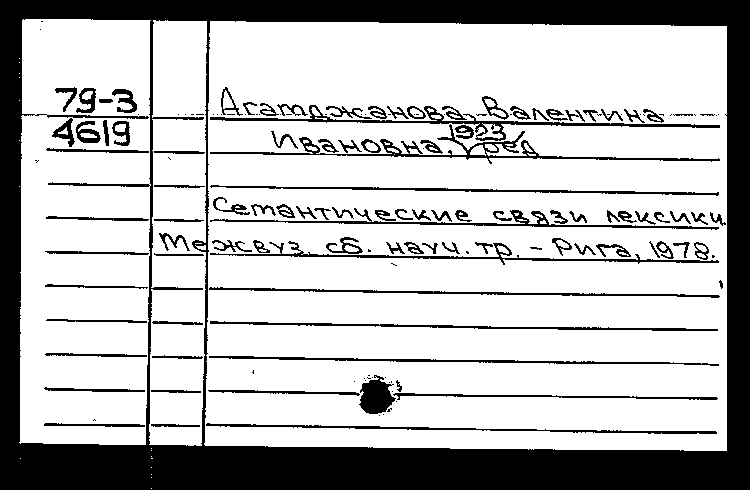 79-3
4619
Агатджанова, Валентина
Ивановна, 1923, ред
Семантические связи лексики.
Межвуз. сб. науч. тр. – Рига, 1978.